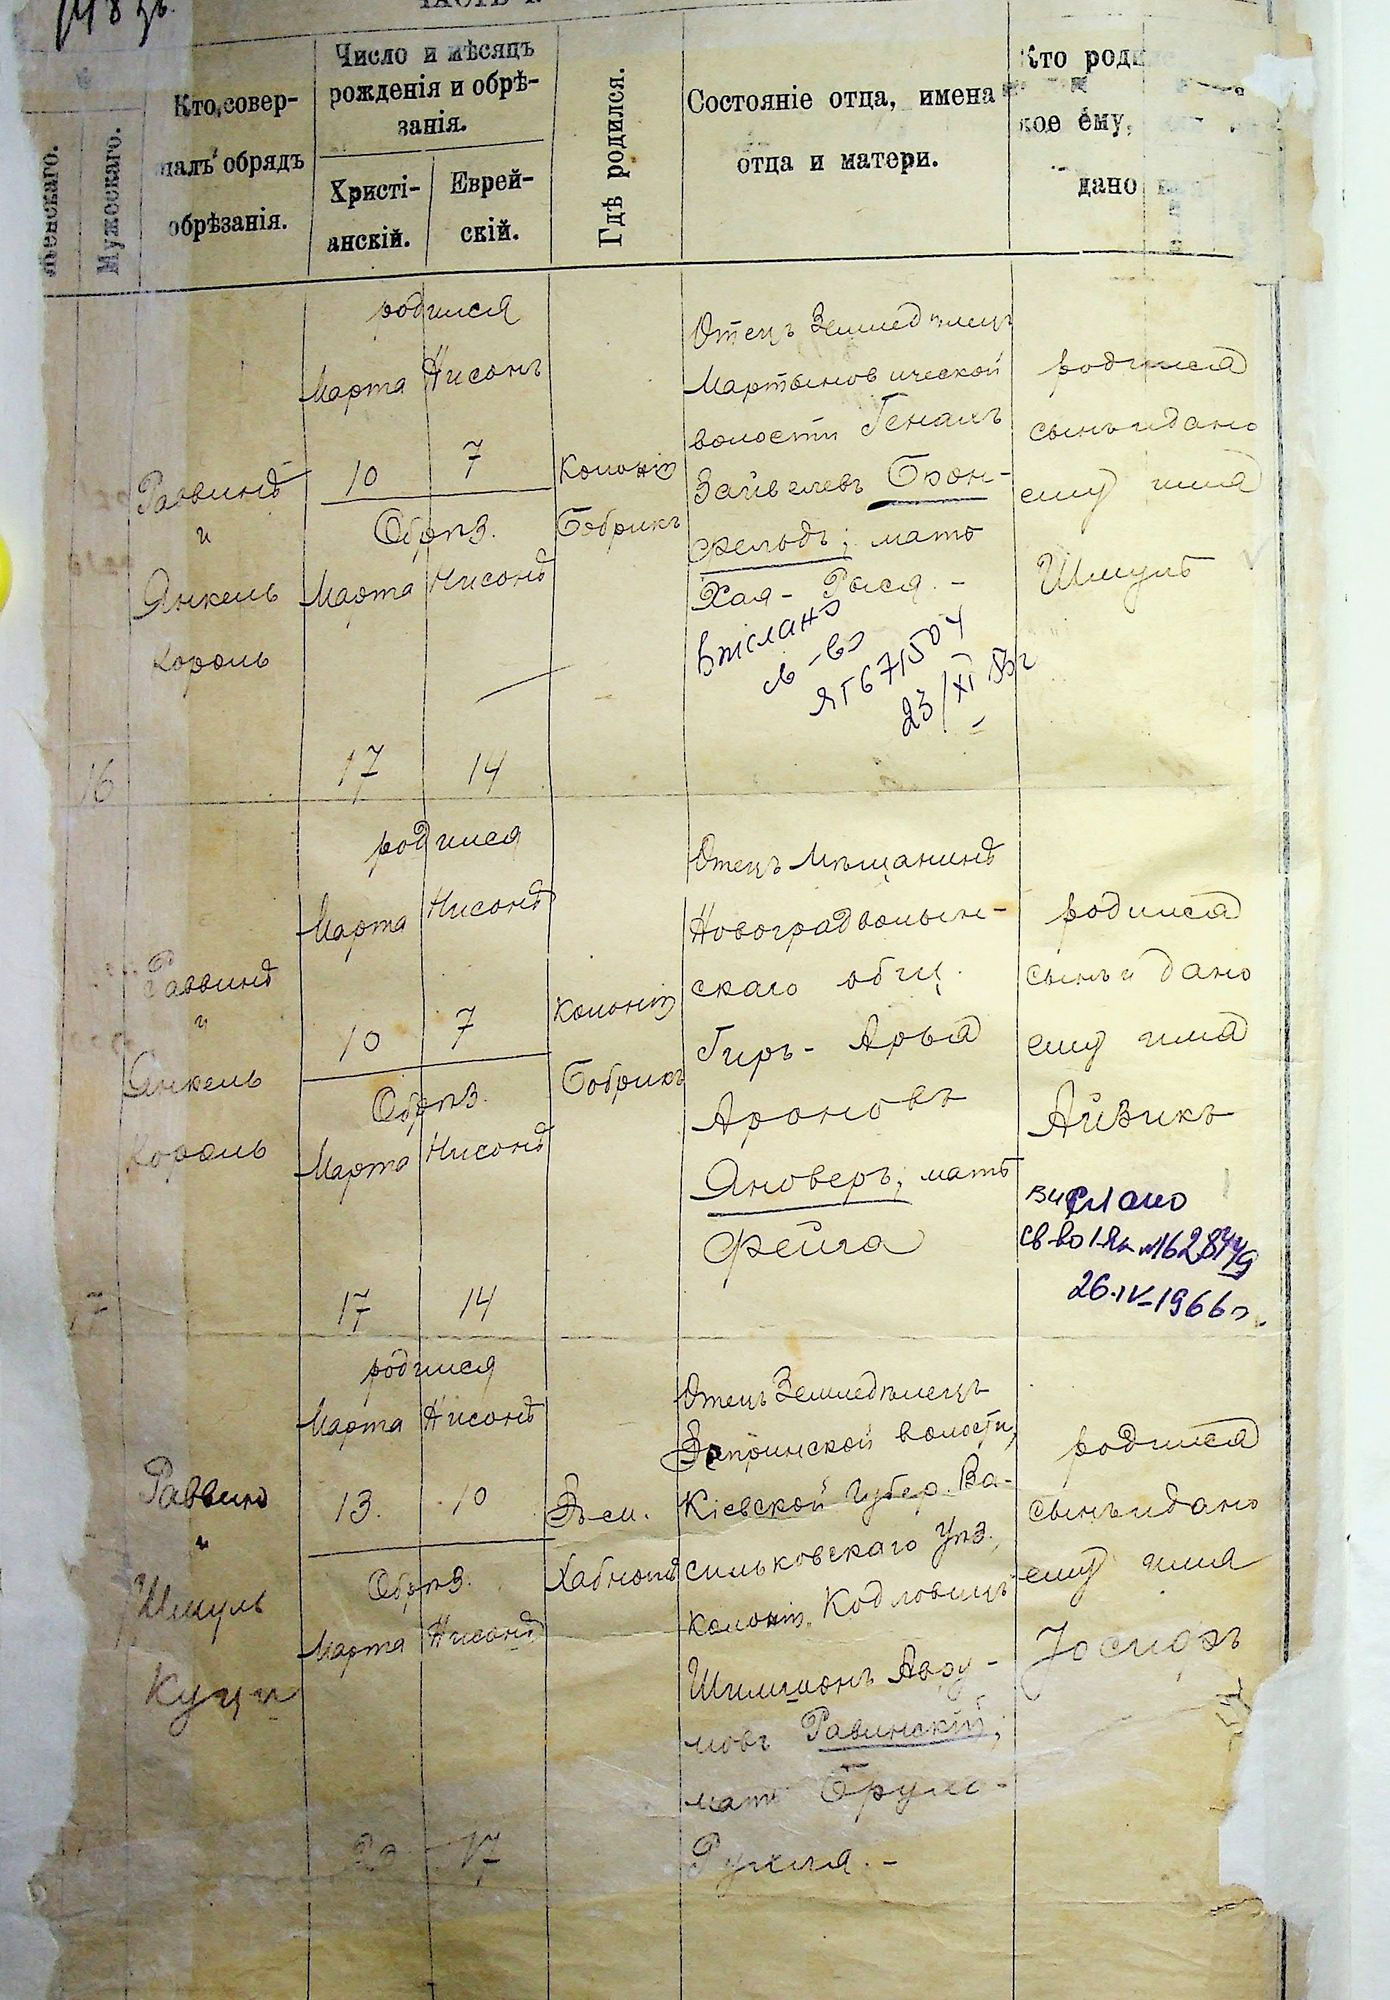 Часть I.
Женскаго.
Мужескаго.
Кто совер-
шалъ обрядъ
обрѣзанія.
Число и мѣсяцъ
рожденія и обрѣ-
занія.
Христі-
анскій.
Еврей-
скій.
Гдѣ родился.
Состояніе отца, имена
отца и матери.
Кто роди
кое ему,
дано
16
Раввинъ
и
Янкель
Король
родился
Марта Нисонъ
10 7
Обрѣз.
Марта Нисонъ
17 14
Колонія
Бобрикъ
Отецъ Земледѣлецъ
Мартыновической
волости Генахъ
Зайвелевъ Брон-
фельдъ; мать
Хая-Рыся.-
Выслано
св-во
ЯГ671504
23/XI 53 г
родился
сынъ и дано
ему имя
Шмуль
17
Раввинъ
и
Янкель
Король
родился
Марта Нисонъ
10 7
Обрѣз.
Марта Нисонъ
17 14
Колонія
Бобрикъ
Отецъ Мѣщанинъ
Новоградволын-
скаго общ.
Гиръ-Арья
Ароновъ
Яноверъ; мать
Фейга
родился
сынъ и дано
ему имя
Айзикъ
Выслано
св-во
26.IV-1966г.
Раввинъ
и
Шмуль
Куци
родился
Марта Нисонъ
13. 10
Обрѣз.
Марта Нисонъ
20 17
Хабное
Отецъ Земледѣлецъ
волости,
Кіевской Губер. Ва-
сильковскаго Уѣз.
колоніи Кодловицъ
Шлимонъ Авру-
мовъ Равинскій;
мать Бруха-
Рухля.-
родился
сынъ и дано
ему имя
Іосифъ